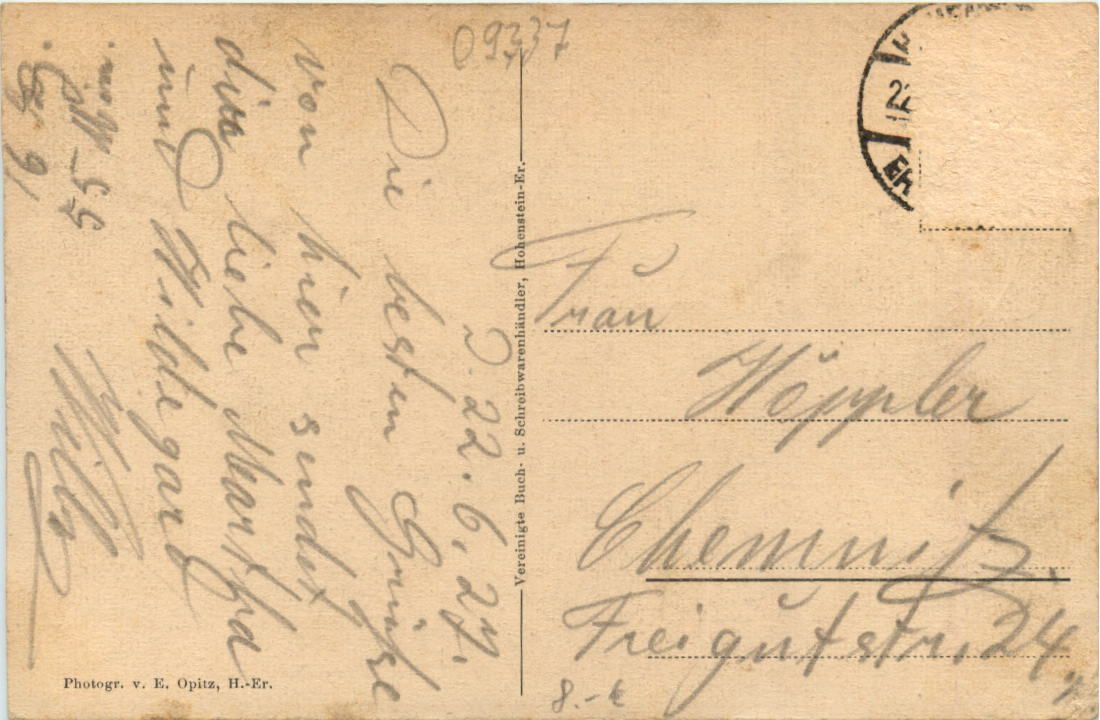 09337
D. 22. 6. 27.
Die besten Grüße
von hier sendet
dir liebe Martha
und Hildegard
Willy
Vereinigte Buch- u. Schreibwarenhändler, Hohenstein-Er.
Frau
Höppler
Chemnitz.
Freigutstr. 24
Photogr. v. E. Opitz, H.-Er.
8.- €